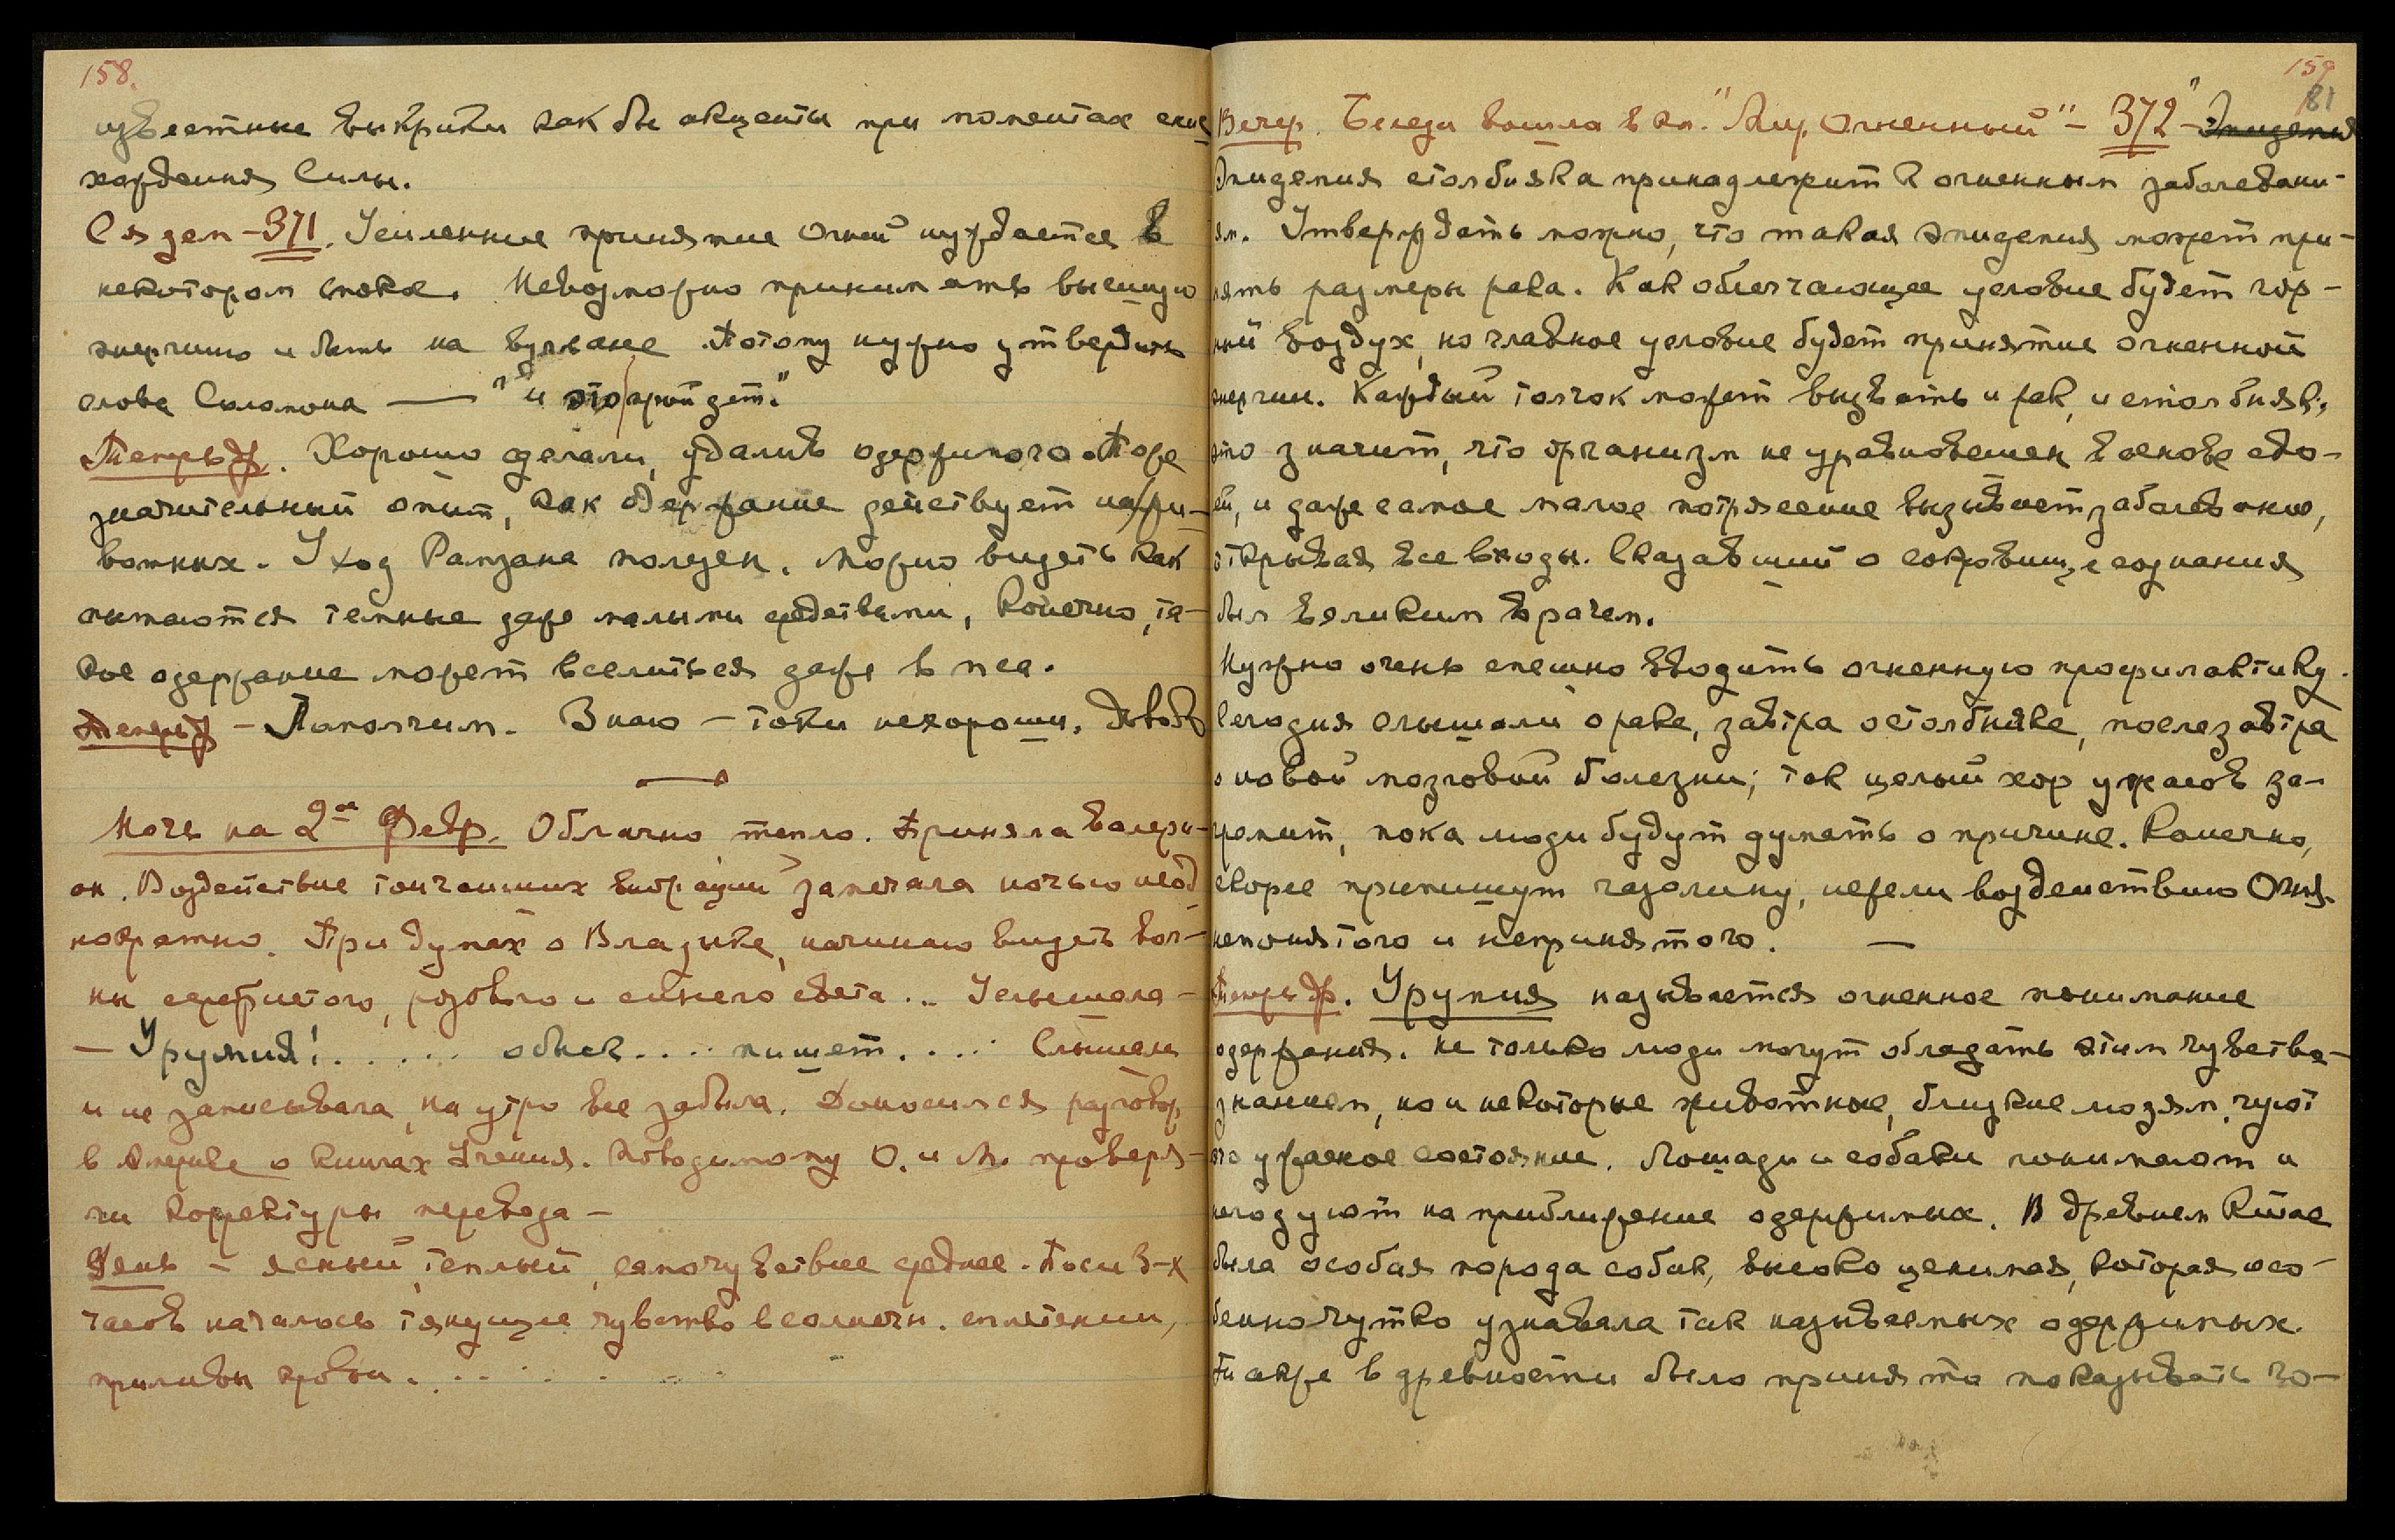 158.
известные выкрики как бы акценты при моментах снис
хождения Силы.
След. – 371. Усиленные принятие огней нуждается в
некотором покое. Невозможно принимать высшую
энергию и быть на вулкане. Потому нужно утвердить
слова Соломона — "и это пройдет."
Теперь др. Хорошо сделали, удалив одержимого. Тоже
значительный опыт, как одержание действует на жи-
вотных. Уход Рамзана полезен. Можно видеть как
пытаются темные даже малыми средствами, конечно, та-
кое одержание может вселиться даже в пса.
Теперь др – Помолчим. Знаю – токи нехороши. Довол
Ночь на 2ое Февр. Облачно тепло. Приняла валери-
ан. Воздействие тончайших вибраций замечала ночью неод
нократно. При думах о Владыке, начинаю видеть вол-
ны серебристого, розового и синего света... Услышала –
– Урумия! . . . . . обыск . . . . пишет. . . . Слышала
и не записывала, на утро все забыла. Доносился разговор,
в Америке о книгах Учения. Повидимому О. и М. проверя-
ли корректуры перевода –
День – ясный, теплый, самочувствие среднее. После 3-х
часов началось тянущее чувство в солнечн. сплетении,
приливы крови. . . . . .
159
81
Вечер. Беседа вошла в кн. "Мир Огненный" – 372 – Эпидемия
Эпидемия столбняка принадлежит к огненным заболевани-
ям. Утверждать можно, что такая эпидемия может при-
нять размеры рака. Как облегчающее условие будет гор-
ный воздух, но главное условие будет принятие огненной
энергии. Каждый толчок может вызвать и рак, и столбняк,
это значит, что организм не уравновешен в основе сво-
ей, и даже самое малое потрясение вызывает заболевание,
открывая все входы. Сказавший о сокровище сознания
был великим врачем.
Нужно очень спешно вводить огненную профилактику.
Сегодня слышали о раке, завтра о столбняке, послезавтра
о новой мозговой болезни; так целый хор ужасов за-
гремит, пока люди будут думать о причине. Конечно,
скорее припишут газолину, нежели воздействию Огня,
непонятого и непринятого. —
Теперь др. Урумия называется огненное понимание
одержания. Не только люди могут обладать этим чувство-
знанием, но и некоторые животные, близкие людям, чуют
это ужасное состояние. Лошади и собаки понимают и
негодуют на приближение одержимых. В древнем Китае
была особая порода собак, высоко ценимая, которая осо-
бенно чутко узнавала так называемых одержимых.
Также в древности было принято показывать го-